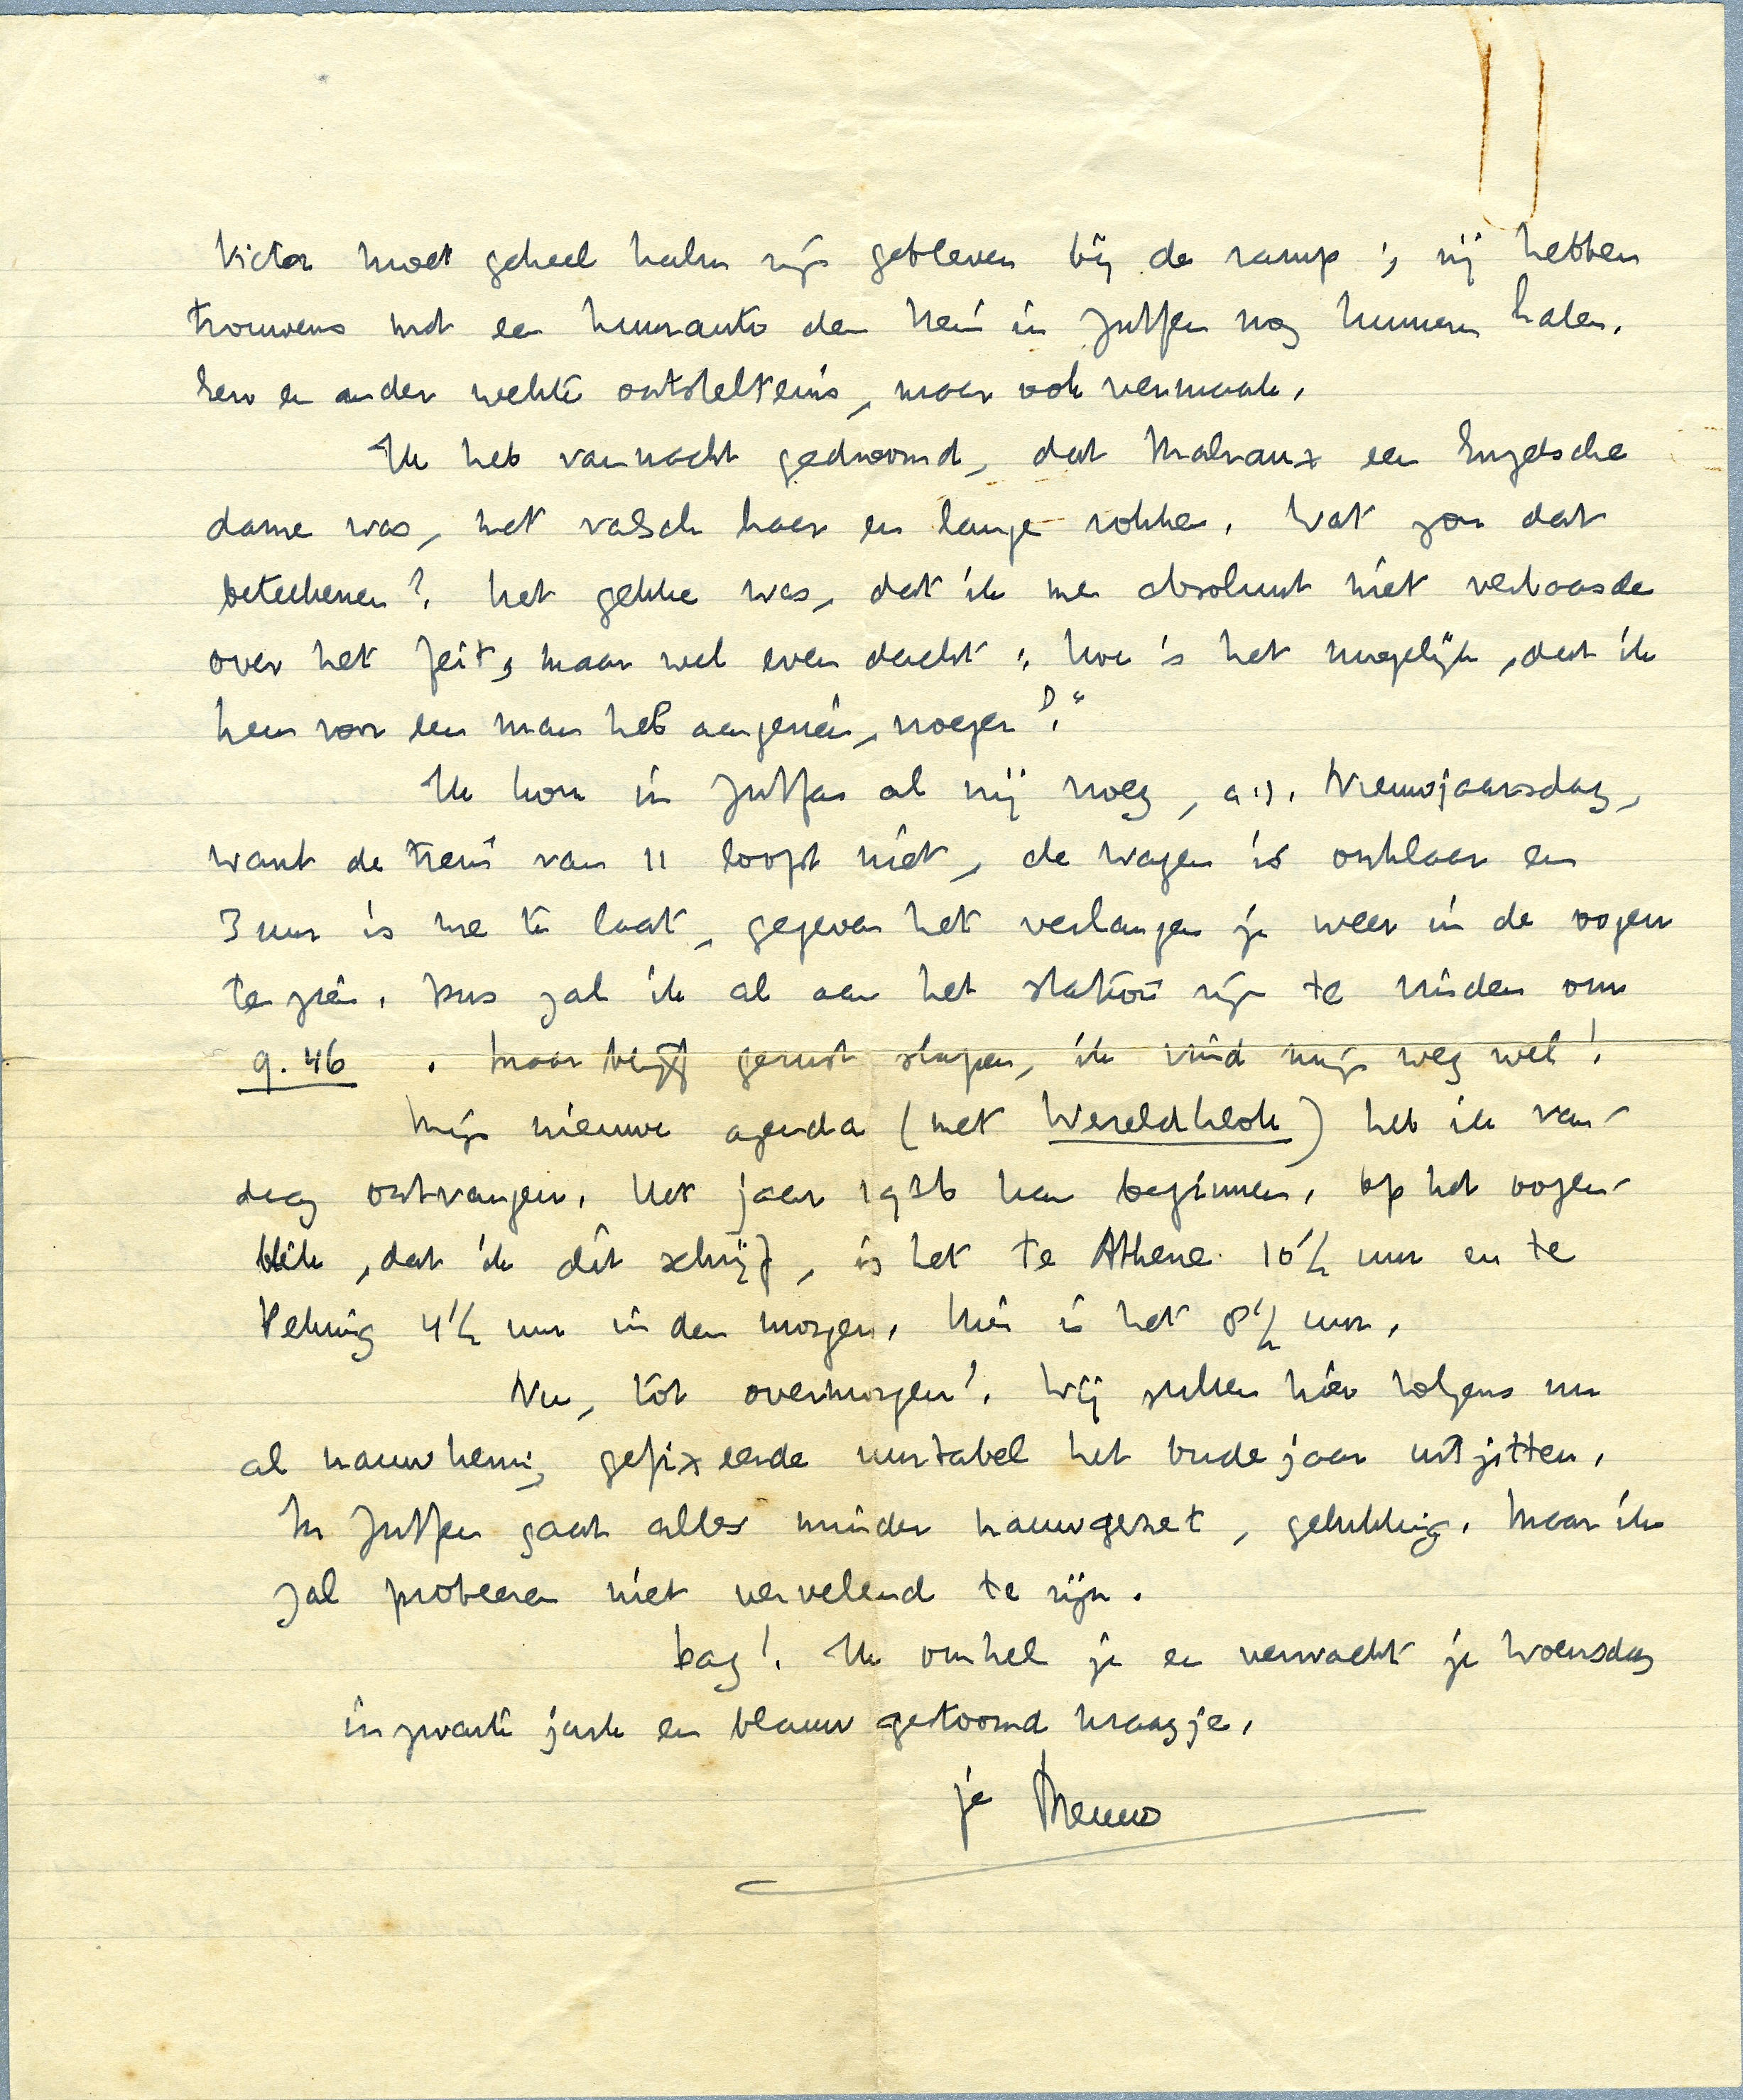 Victor moet geheel kalm zijn gebleven bij de ramp; zij hebben
trouwens met een huurauto den trein in Zutfen nog kunnen halen.
Een en ander wekte ontsteltenis, maar ook vermaak.
Ik heb vannacht gedroomd, dat Malraux een Engelsche
dame was, met valsch haar en lange rokken. Wat zou dat
beteekenen? Het gekke was, dat ik me absoluut niet verbaasde
over het feit, maar wel even dacht: hoe is het mogelijk, dat ik
hem voor een man heb aangezien, vroeger?"
Ik kom in Zutfen al vrij vroeg, a.s. Nieuwjaarsdag,
want de trein van 11 loopt niet, de wagen is onklaar en
3 uur is me te laat, gegeven het verlangen je weer in de oogen
te zien. Dus zal ik al aan het station zijn te vinden om
9.46. Maar blijf gerust slapen, ik vind mijn weg wel!
Mijn nieuwe agenda (met Wereldklok) heb ik van-
daag ontvangen. Het jaar 1936 kan beginnen. Op het oogen-
blik, dat ik dit schrijf, is het te Athene 10½ uur en te
Peking 4½ uur in den morgen. Hier is het 8½ uur.
Nu, tot overmorgen! Wij zullen hier volgens een
al nauwkeurig gefixeerde uurtabel het oude jaar uitzitten.
In Zutfen gaat alles minder nauwgezet, gelukkig. Maar ik
zal probeeren niet vervelend te zijn.
Dag! Ik omhels je en verwacht je Woensdag
in zwarte jurk en blauw gestoomd kraagje.
je Menno